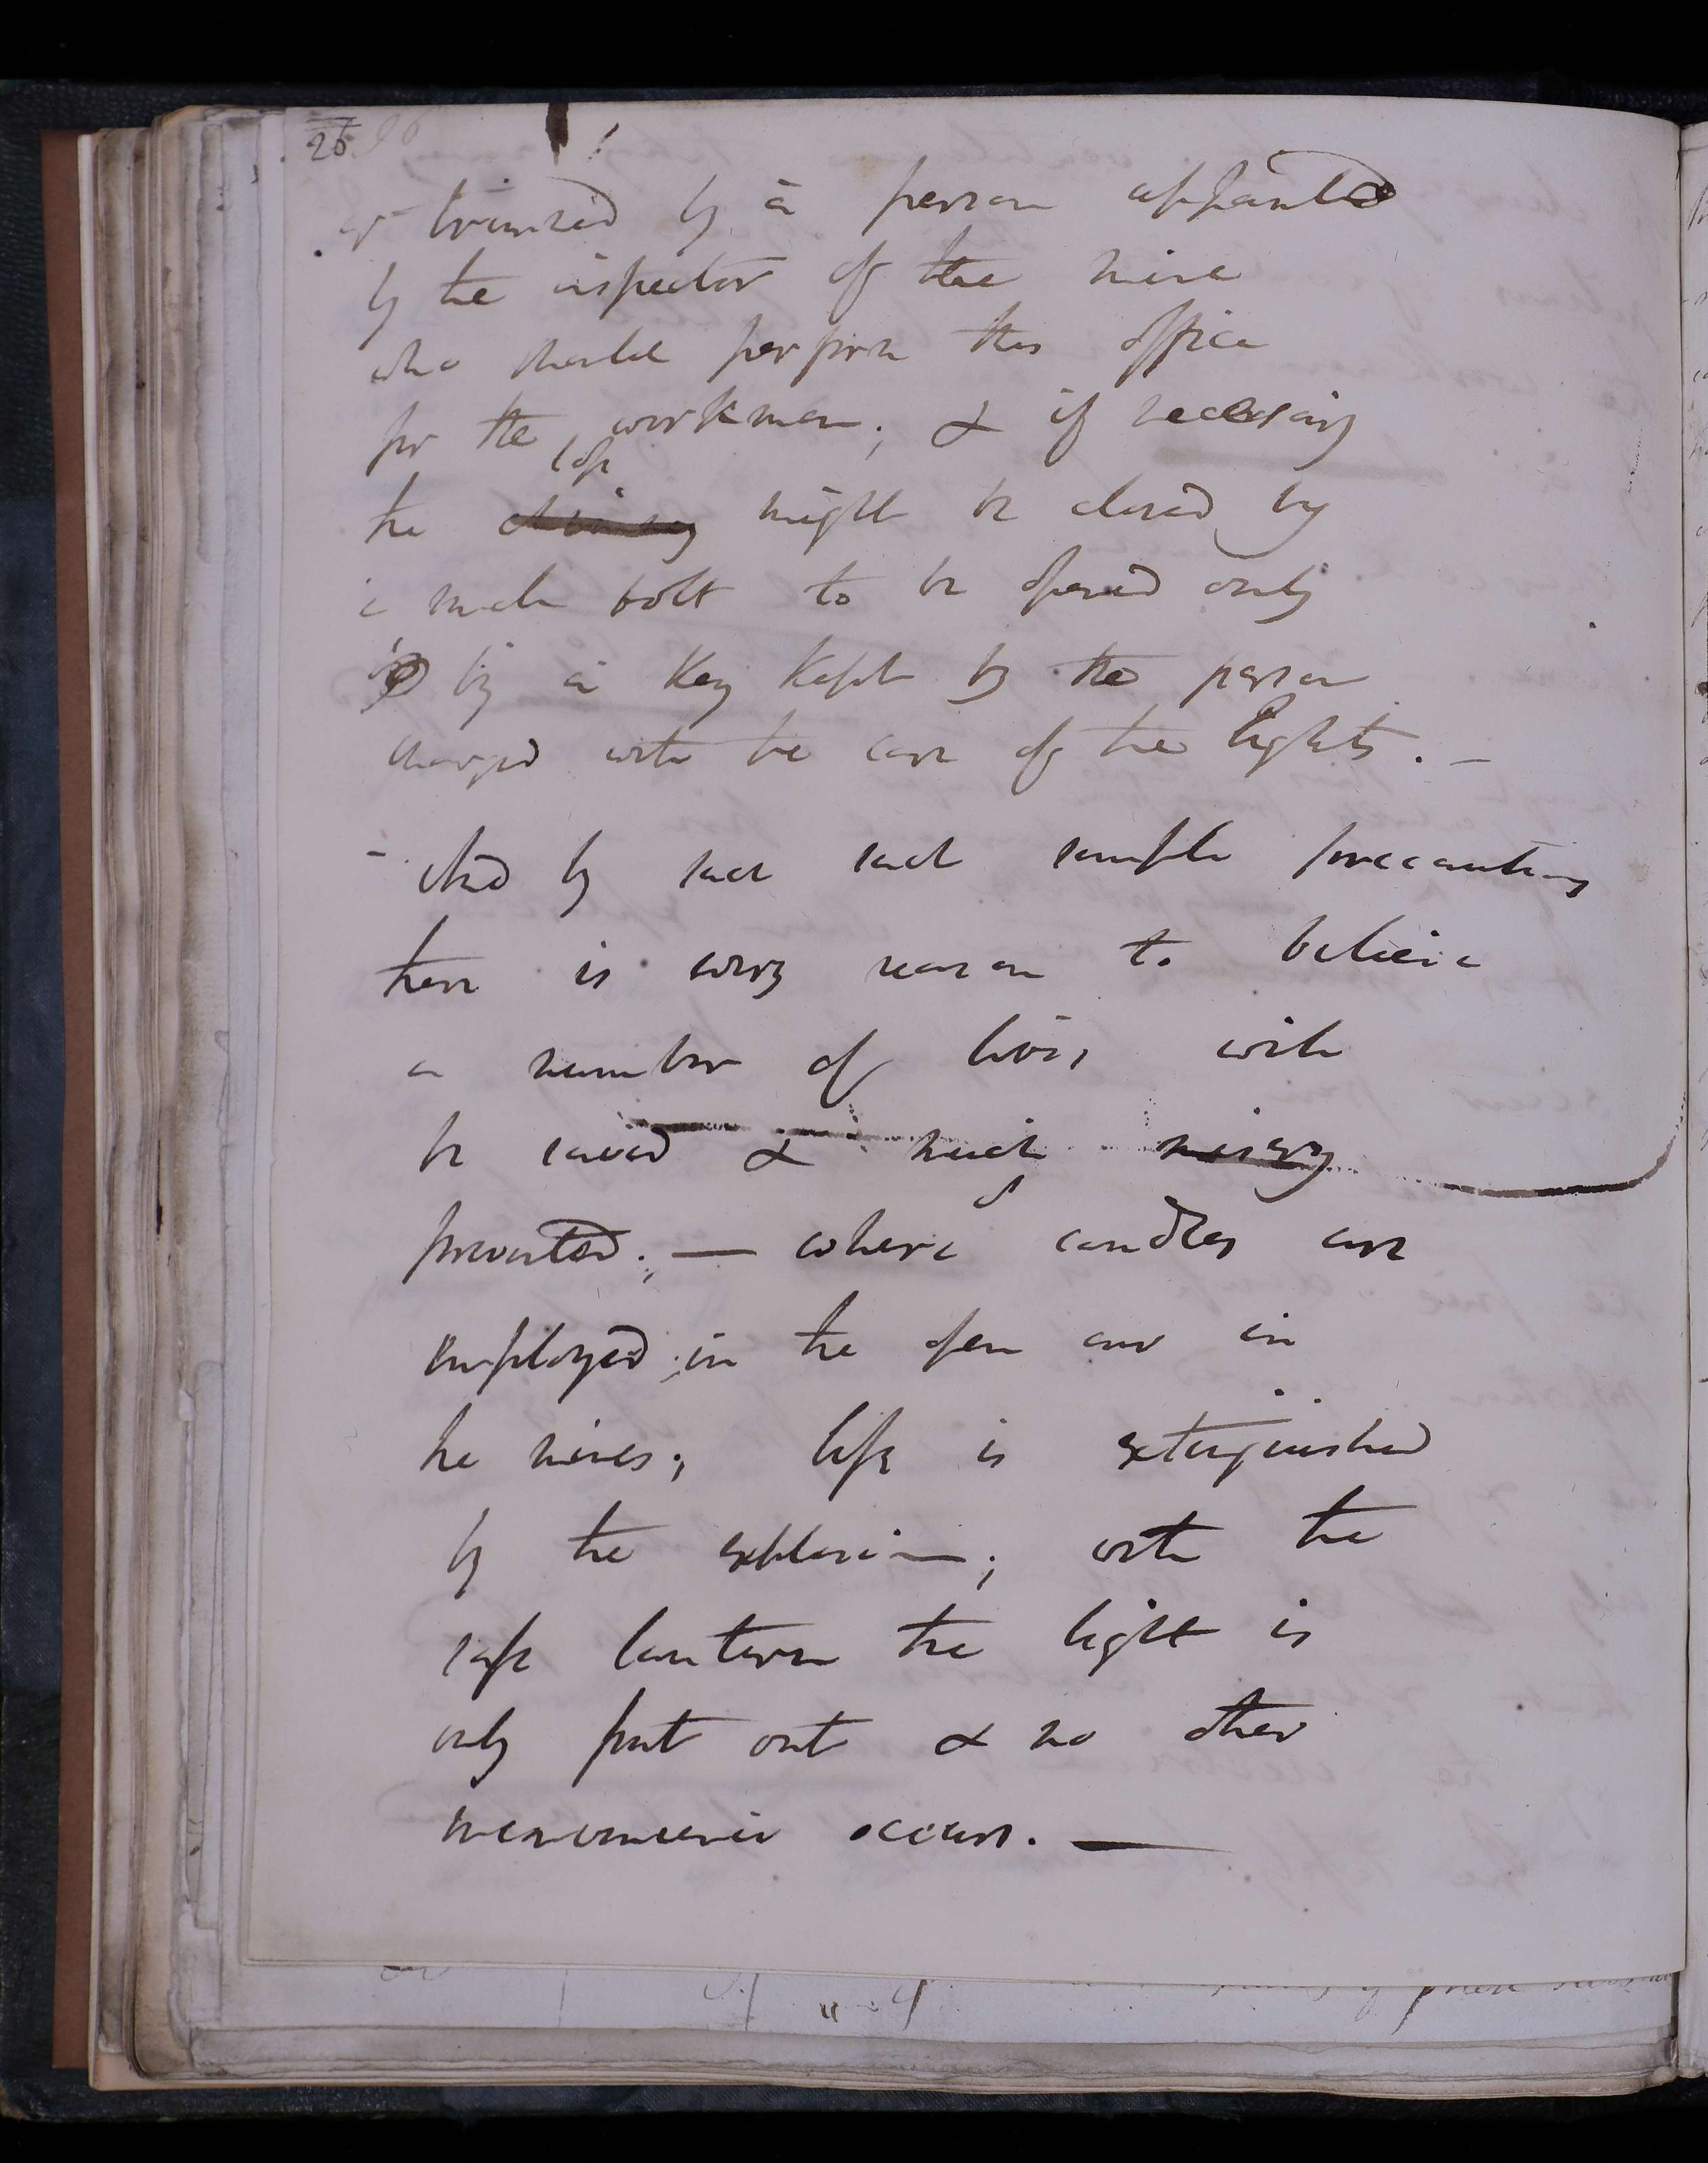 26
or trimmed by a person appointed
by the inspector of the mine
who should perform this office
for the workmen; & if necessary
top
the chimney might be closed by
a bolt to be opened only
by a key kept by the person
charged with the care of the lights. —
by such such simple precautions
there is every reason to believe
a number of lives will
be saved & much misery
prevented; — where candles are
employed in the open air in
the mines; life is extinguished
by the explosion; with the
safe lantern the light is
only put out & no other
inconvenience occurs. —